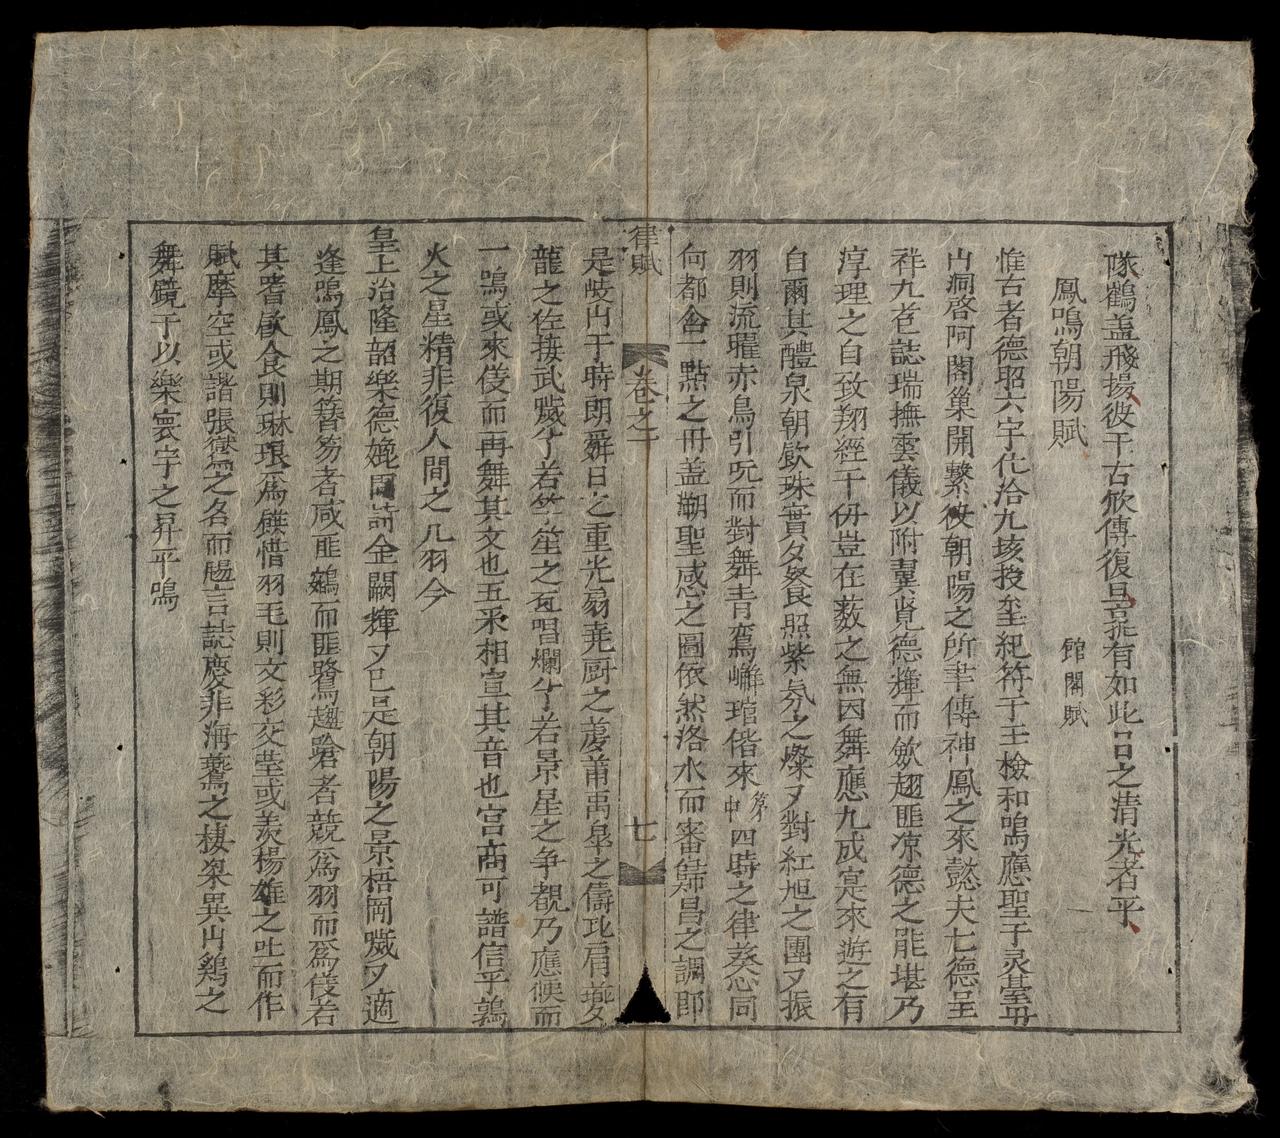 隊鶴盖飛揚彼千古欣傳復旦詎有如此日之清光者乎
鳳鳴朝陽賦
館閣賦
惟古者德昭六宇化洽九垓授至紀符于玉檢和鳴應聖于灵臺丹
山洞啓阿閣巢開繫彼朝陽之所聿傳神鳳之來懿夫七德呈
祥九苞誌瑞撫雲儀以附羣覽德輝而歛翅匪凉德之能堪乃
淳理之自致翔經千仞豈在薮之無因舞應九成寔來遊之有
自爾其醴泉朝飲珠實夕餐照紫氛之燦又對紅旭之團又振
羽則流曜赤烏引吭而對舞青鸞嶰琯偕來第中四時之律葵忝同
何都含一點之丹盖朝聖感之圖依然洛水而審歸昌之調即
律賦
卷之二
七
是歧山于時朗舜日之重光扇堯厨之萐莆禹皋之儔比肩夔
龍之佐接武噦兮若竺笙之互唱爛兮若景星之争覩乃應候而
一鳴或來儀而再舞其文也五釆相宣其音也宫商可譜信乎鶉
火之星精非復人間之凡羽今
皇上治隆韶樂德媲閟詩金闕輝又已是朝陽之景梧岡噦又適
逢鳴鳳之期簪笏者咸匪鵷而匪鷺趨蹌者競爲羽而爲儀若
其嗜飲食則琳琅爲饌惜羽毛則文彩交瑩或羨楊雄之吐而作
賦摩空或諧張鷟之名而颺言誌慶非海鷟之棲梁異山鷄之
舞鏡于以樂寰宇之昇平鳴